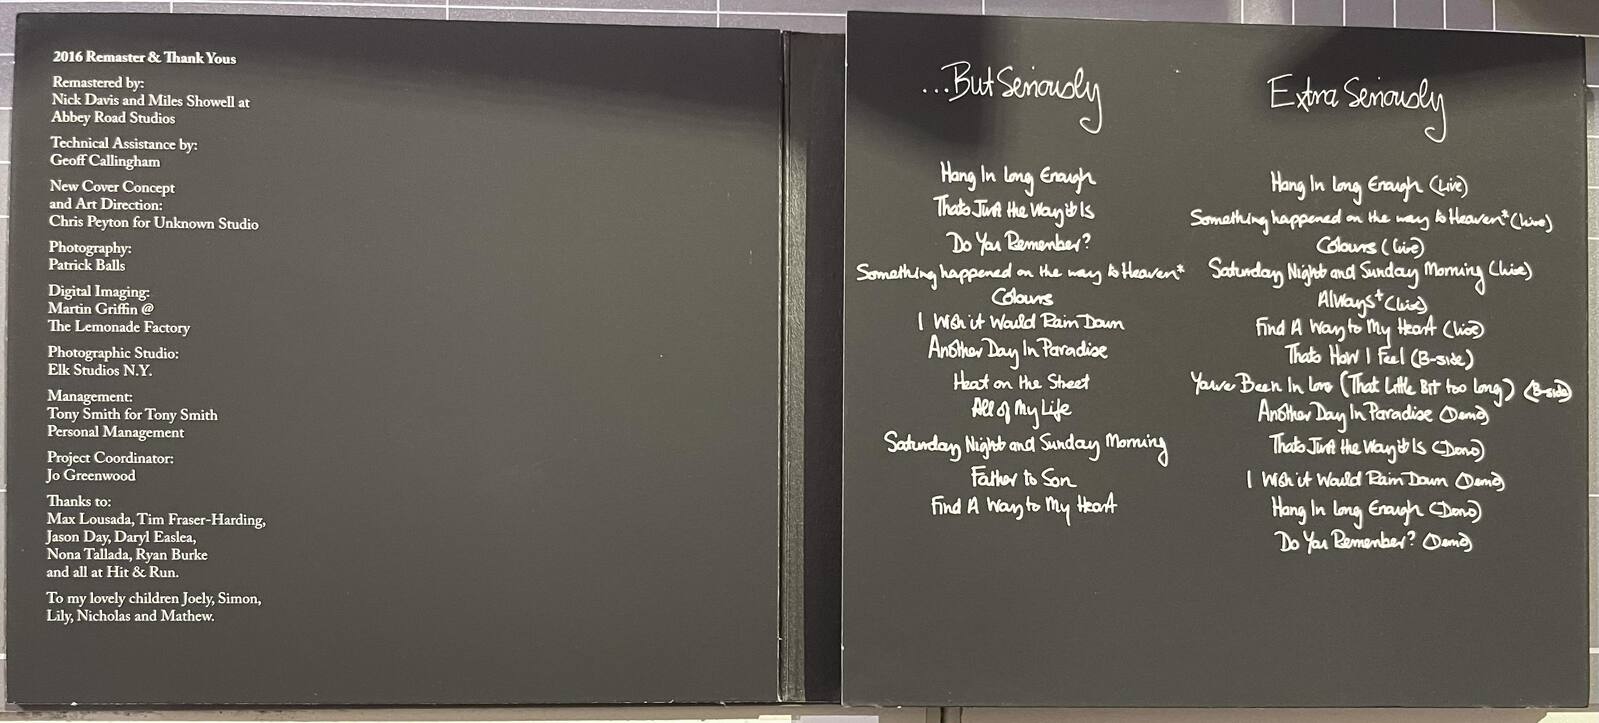 2016 Remaster & Thank Yous
Remastered by:
Nick Davis and Miles Showell at
Abbey Road Studios
Technical Assistance by:
Geoff Callingham
New Cover Concept
and Art Direction:
Chris Peyton for Unknown Studio
Photography:
Patrick Balls
Digital Imaging:
Martin Griffin @
The Lemonade Factory
Photographic Studio:
Elk Studios N.Y.
Management:
Tony Smith for Tony Smith
Personal Management
Project Coordinator:
Jo Greenwood
Thanks to:
Max Lousada, Tim Fraser-Harding,
Jason Day, Daryl Easlea,
Nona Tallada, Ryan Burke
and all at Hit & Run.
To my lovely children Joely, Simon,
Lily, Nicholas and Mathew.
...But Seriously
Hang In Long Enough
Thats Just the Way it Is
Do You Remember?
Something happened on the way to Heaven*
Colours
I Wish it Would Rain Down
Another Day In Paradise
Heat on the Street
All of My Life
Saturday Night and Sunday Morning
Father to Son
Find A Way to My Heart
Extra Seriously
Hang In Long Enough (Live)
Something happened on the way to Heaven* (Live)
Colours (Live)
Saturday Night and Sunday Morning (Live)
Always+ (Live)
Find A Way to My Heart (Live)
Thats How I Feel (B-side)
Youve Been In Love (That Little Bit too Long) (B-side)
Another Day In Paradise (Demo)
Thats Just the Way it Is (Demo)
I Wish it Would Rain Down (Demo)
Hang In Long Enough (Demo)
Do You Remember? (Demo)